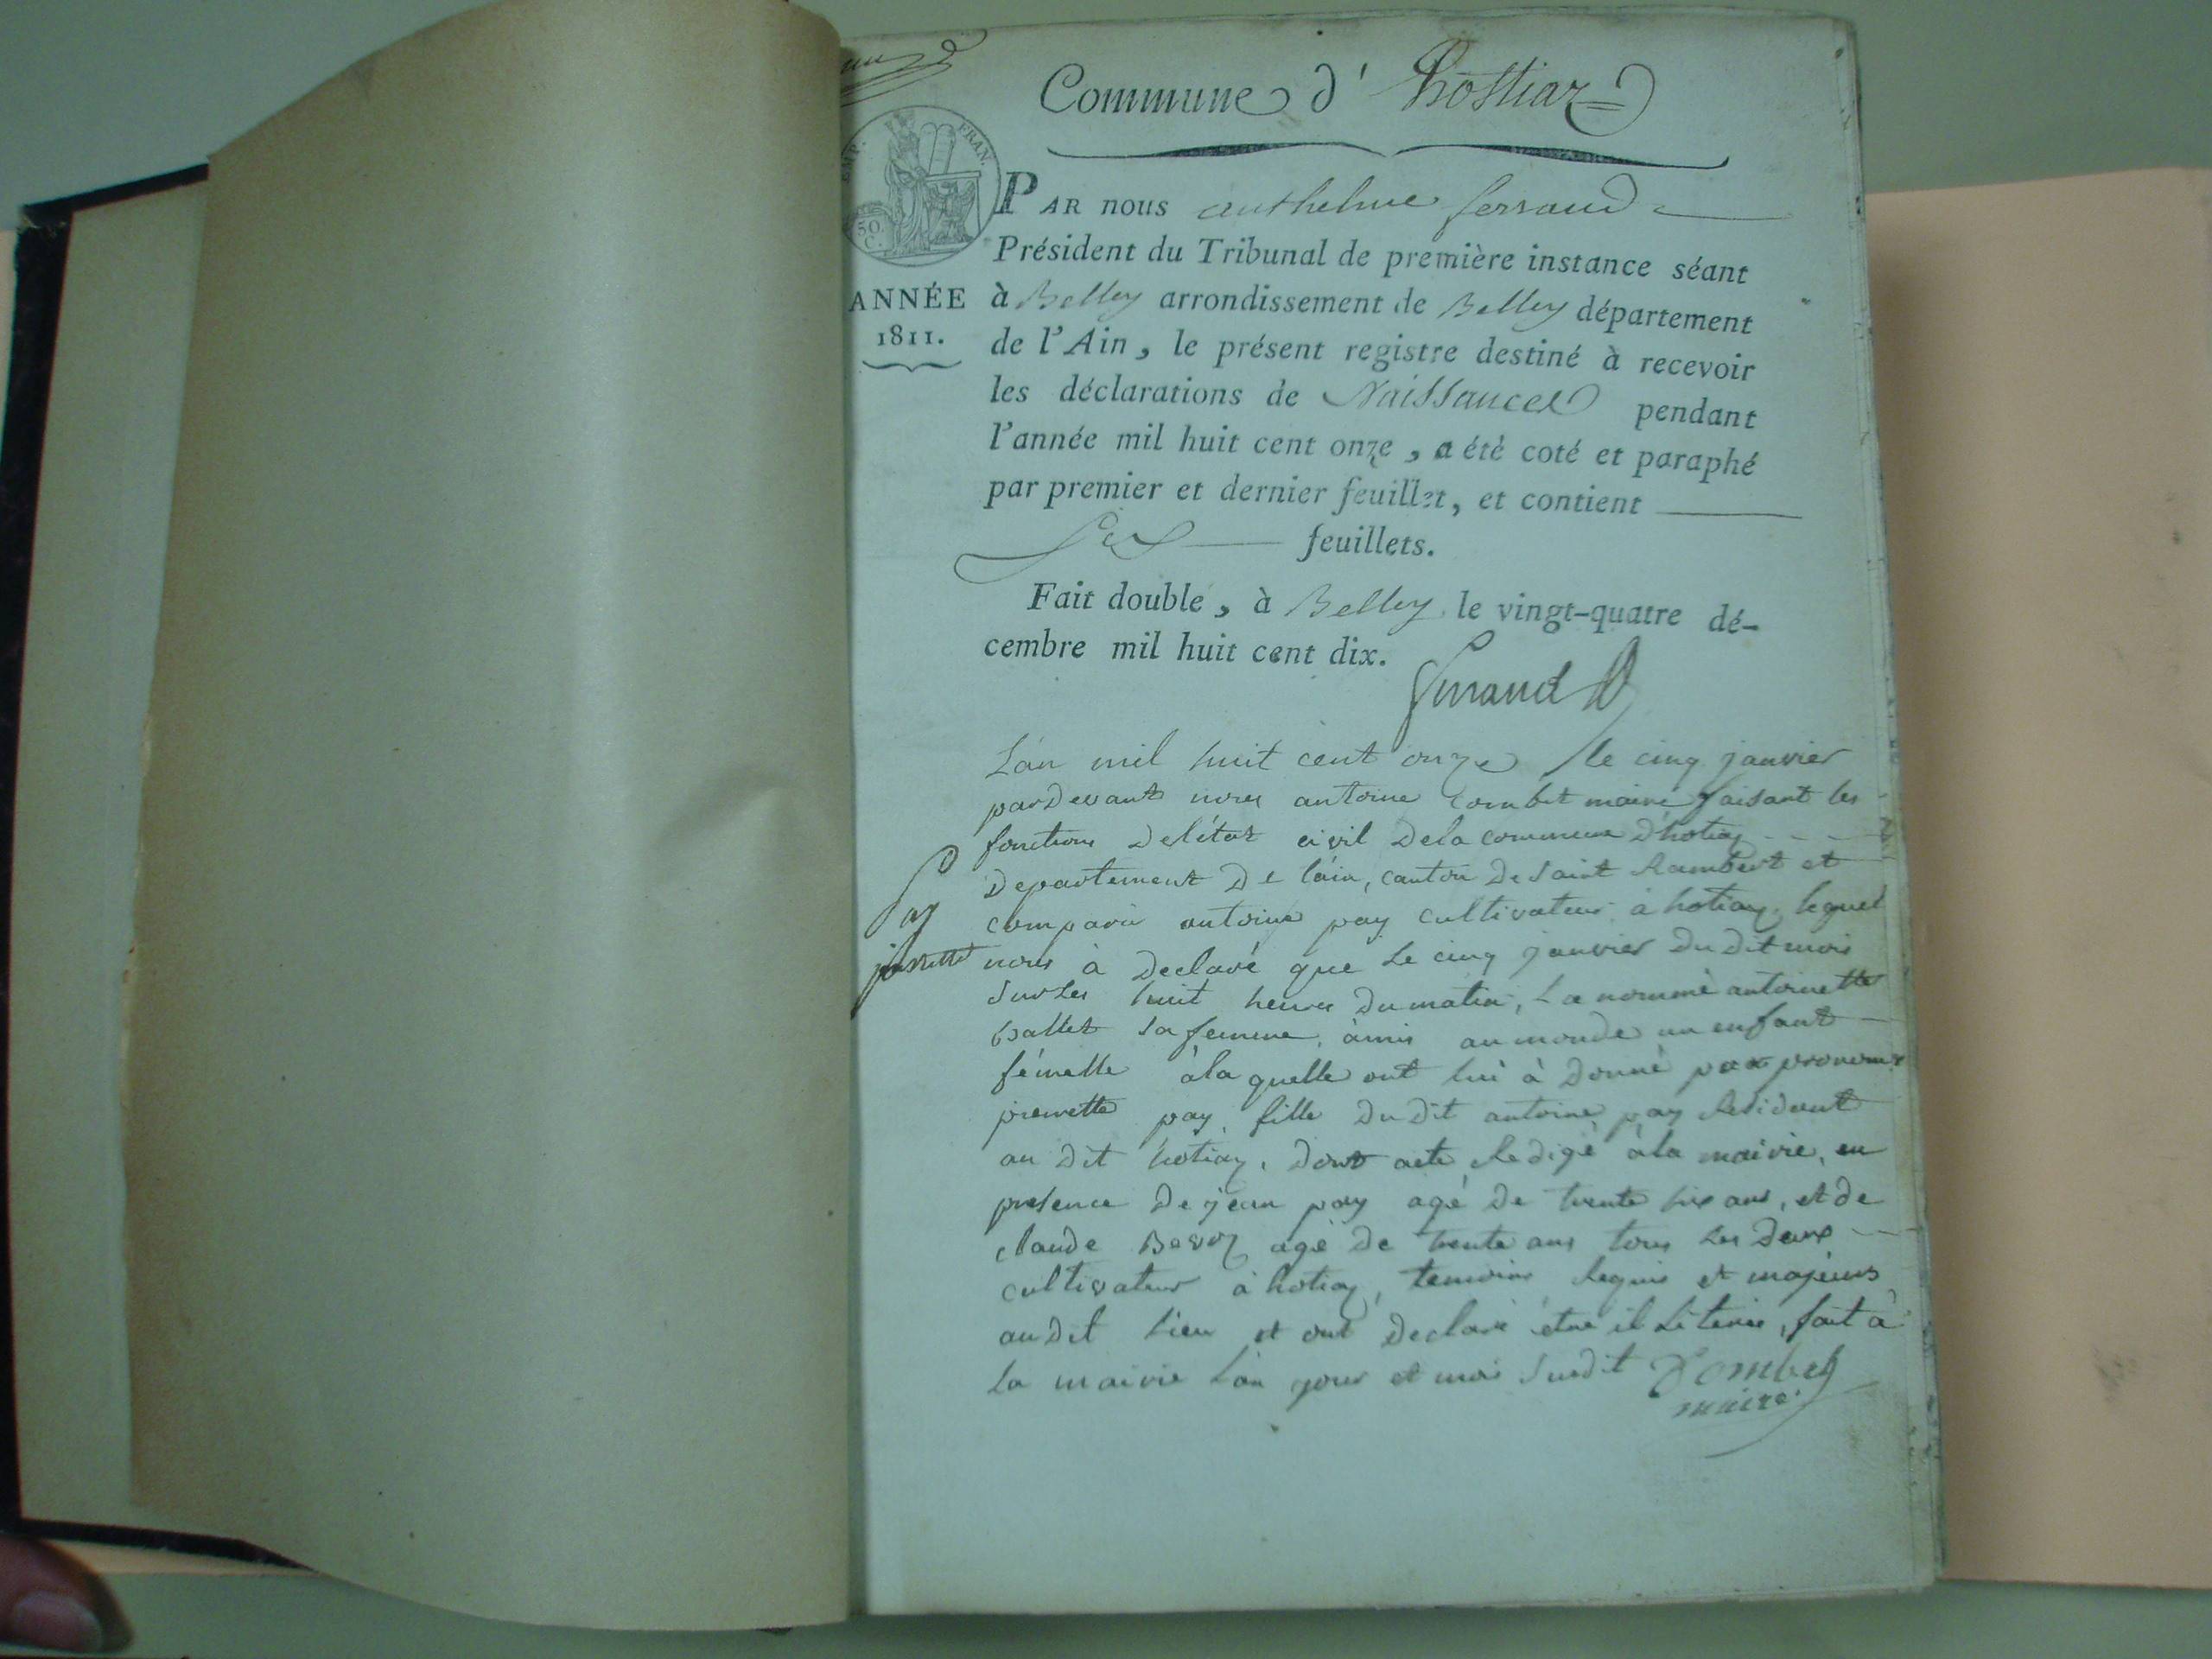 Commune d' hostiaz
EMP. FRAN.
50.
C.
PAR nous anthelme ferrand
Président du Tribunal de première instance séant
ANNÉE
1811.
à Belley arrondissement de Belley département
de l'Ain, le présent registre destiné à recevoir
les déclarations de Naissances pendant
l'année mil huit cent onze, a été coté et paraphé
par premier et dernier feuillet, et contient
six feuillets.
Fait double, à Belley le vingt-quatre dé-
cembre mil huit cent dix.
ferrand
L'an mil huit cent onze le cinq janvier
pardevant nous antoine Combet maire faisant les
fonctions de l'état civil de la commune d'hotiaz
Departement De l'ain, canton de Saint Rambert et
comparu antoine pay cultivateur à hotiaz, lequel
nous à Declaré que Le cinq janvier Du dit mois
Sur Les huit heures Du matin, La nommé antoinette
ballet Sa femme, à mis au monde un enfant
fémelle à la quelle ont lui à Donné pronoms
pay, fille Du Dit antoine pay Resident
au Dit hotiaz, Dont acte Redigé à la mairie, en
presence De jean pay agé De trente six ans, et de
claude agé De trente ans tous Les Deux
cultivateur à hotiaz, temoins Requis et majeurs
au Dit Lieu et ont Declaré être il Literée, fait à
La mairie L'an jour et mois Susdit Combet
maire
pay